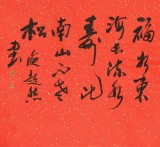 福如東
海長流水
壽比
南山不老
松
書